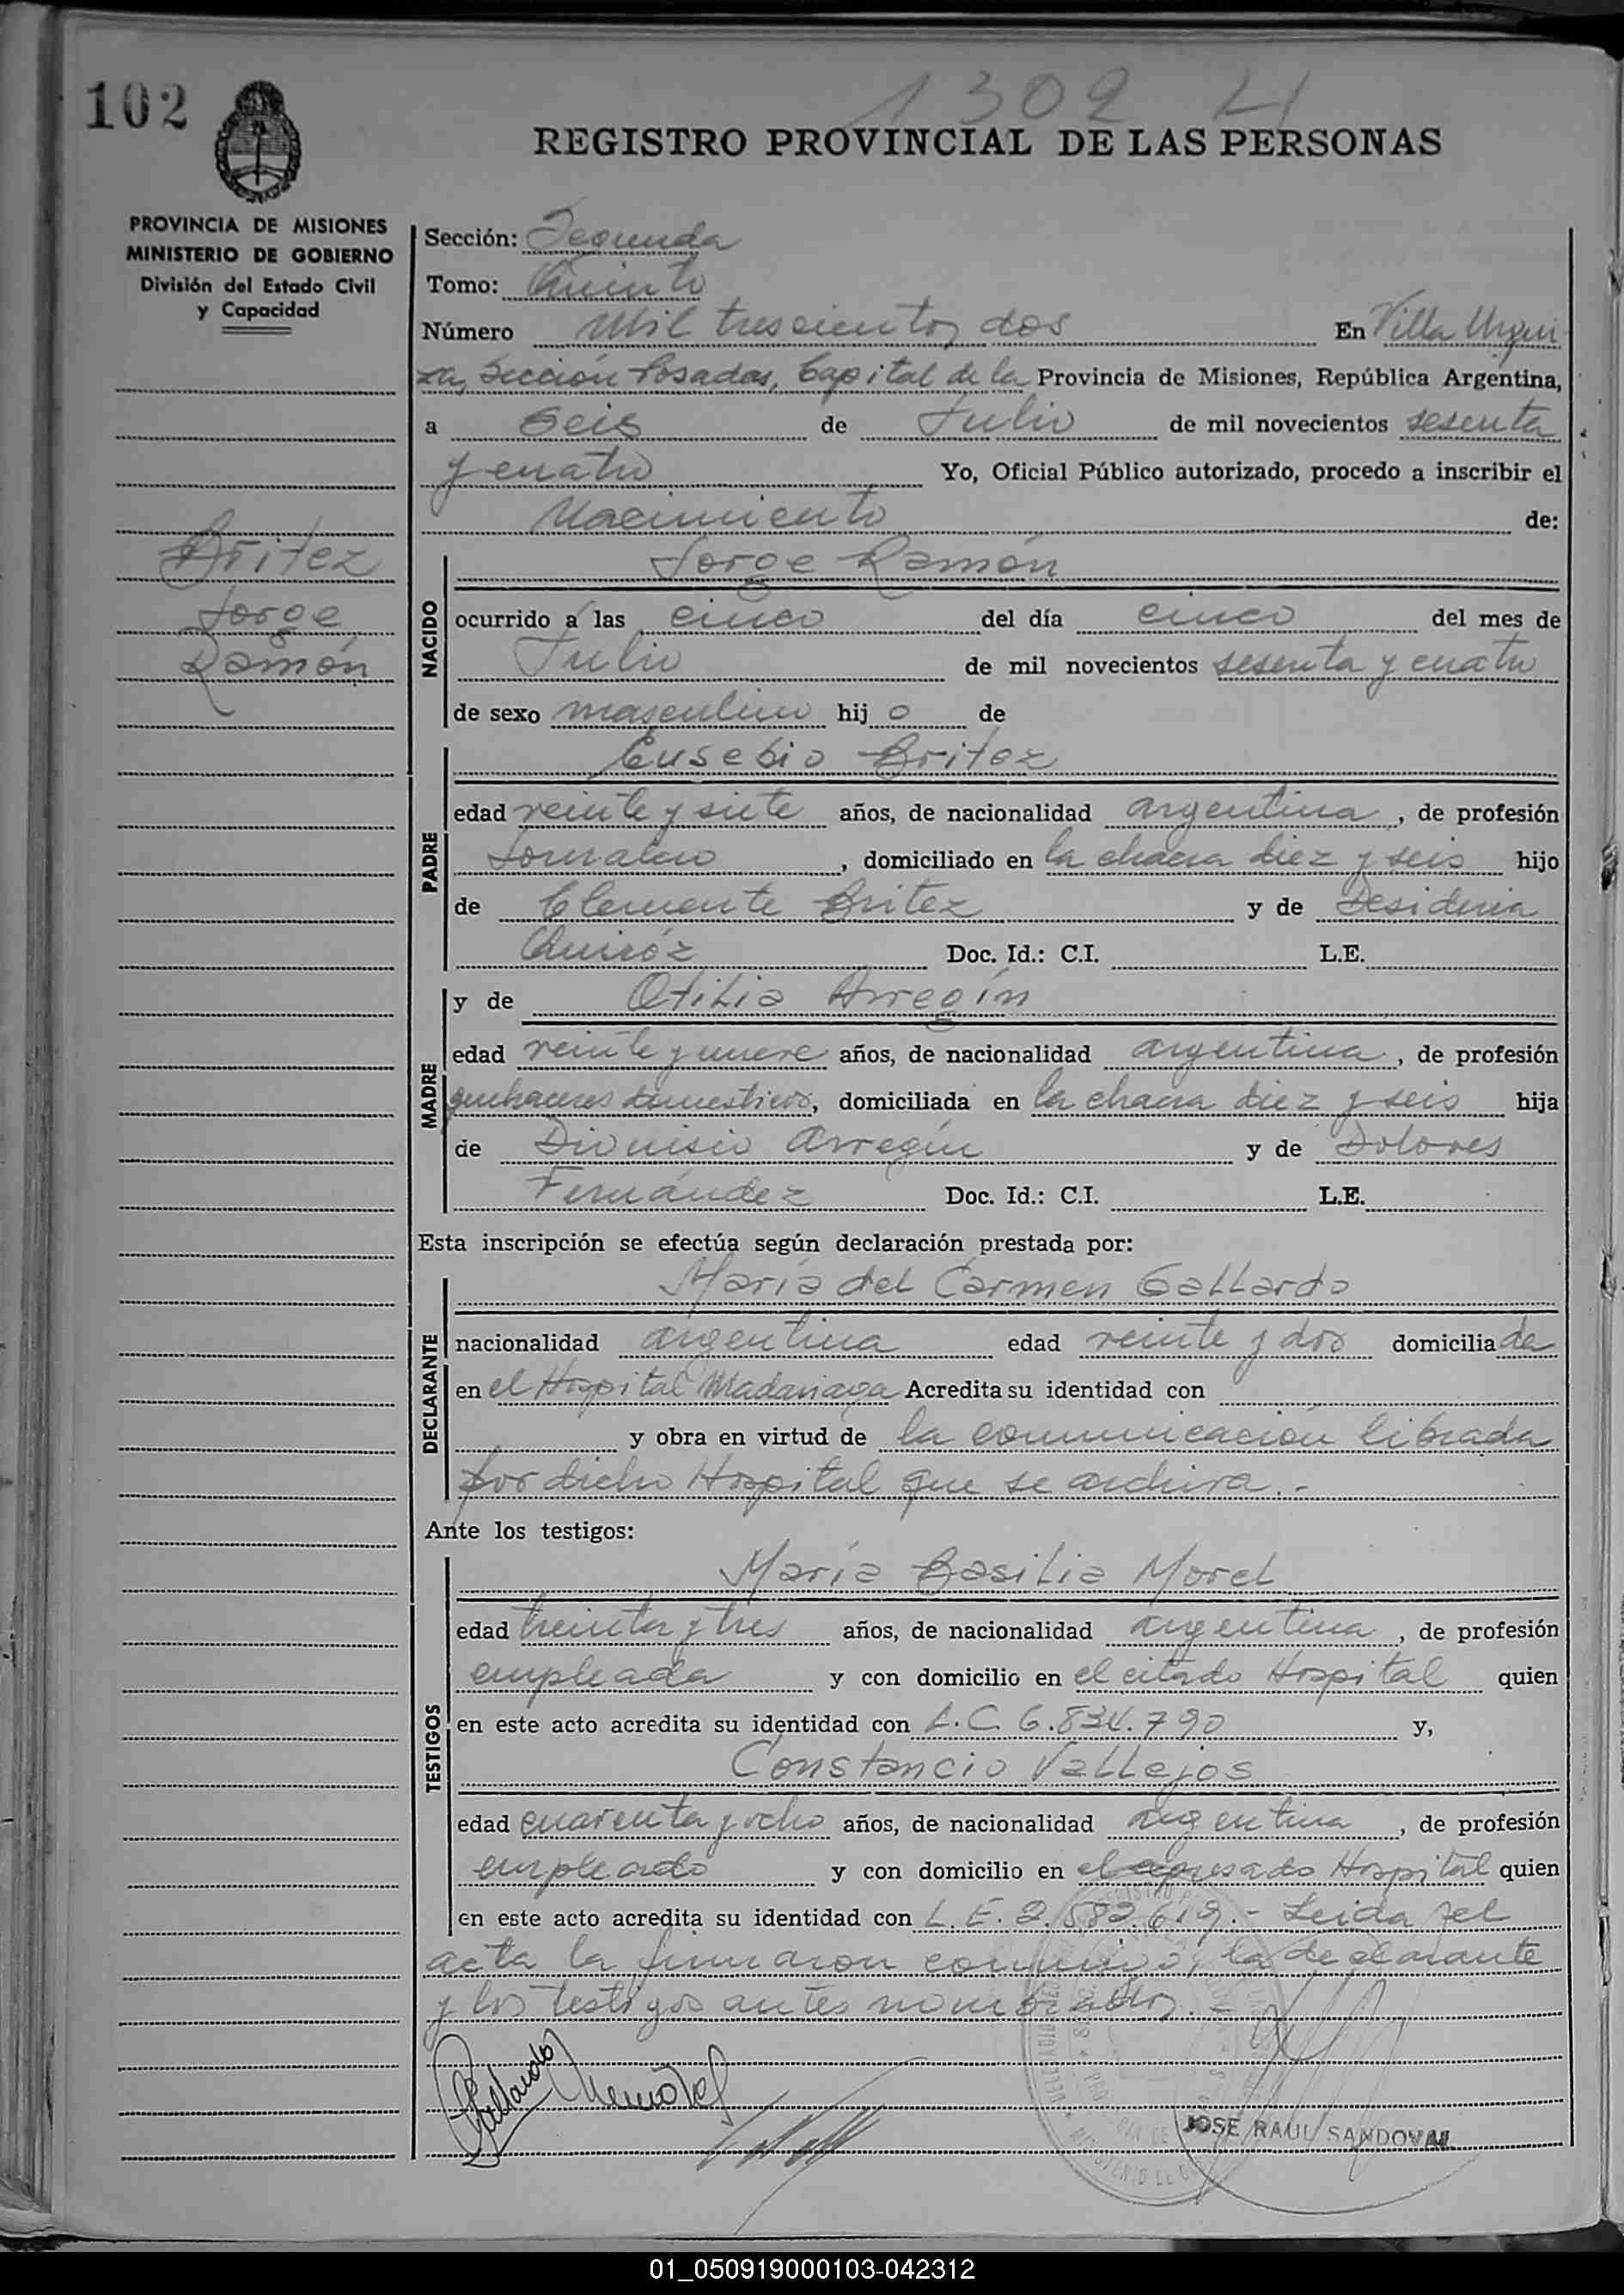 102
1302 H
REGISTRO PROVINCIAL DE LAS PERSONAS
PROVINCIA DE MISIONES
MINISTERIO DE GOBIERNO
División del Estado Civil
y Capacidad
Sección: Segunda
Tomo: Quinto
Número Mil trescientos dos En Villa Urqui-
za, Sección Posadas, Capital de la Provincia de Misiones, República Argentina,
a seis de Julio de mil novecientos sesenta
y cuatro Yo, Oficial Público autorizado, procedo a inscribir el
Nacimiento de:
Britez
Jorge
Ramón
NACIDO
Jorge Ramón
ocurrido a las cinco del día cinco del mes de
Julio de mil novecientos sesenta y cuatro
de sexo masculino hijo de
PADRE
Eusebio Britez
edad veinte y siete años, de nacionalidad argentina, de profesión
Jornalero, domiciliado en la chacra diez y seis hijo
de Clemente Britez y de Desideria
Quiróz Doc. Id.: C.I. L.E.
MADRE
y de Otilia Arregín
edad veinte y nueve años, de nacionalidad argentina, de profesión
quehaceres domesticos, domiciliada en la chacra diez y seis hija
de Dionisio Arregín y de Dolores
Fernández Doc. Id.: C.I. L.E.
Esta inscripción se efectúa según declaración prestada por:
DECLARANTE
María del Carmen Gallardo
nacionalidad argentina edad veinte y dos domiciliada
en el Hospital Madariaga Acredita su identidad con
y obra en virtud de la comunicación librada
por dicho Hospital que se archiva.-
Ante los testigos:
TESTIGOS
María Basilia Morel
edad treinta y tres años, de nacionalidad argentina, de profesión
empleada y con domicilio en el citado Hospital quien
en este acto acredita su identidad con L.C. 6.834.790 y,
Constancio Vallejos
edad cuarenta y ocho años, de nacionalidad argentina, de profesión
empleado y con domicilio en el expresado Hospital quien
en este acto acredita su identidad con L.E. 2.582.619.- Leida el
acta la firmaron conmigo, la declarante
y los testigos antes nombrados.-
Gallardo
JOSE RAUL SANDOVAL
01_050919000103-042312